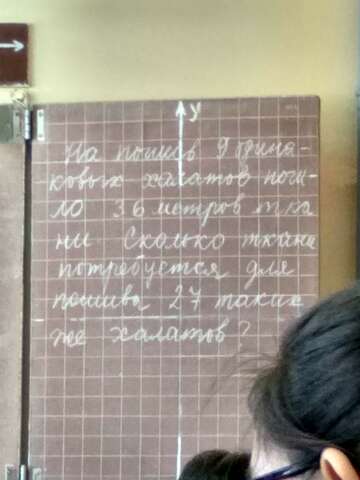 У
На пошив 9 одина-
ковых халатов пош-
ло 36 метров тка
ни. Сколько ткани
потребуется для
пошива 27 таких
же халатов?